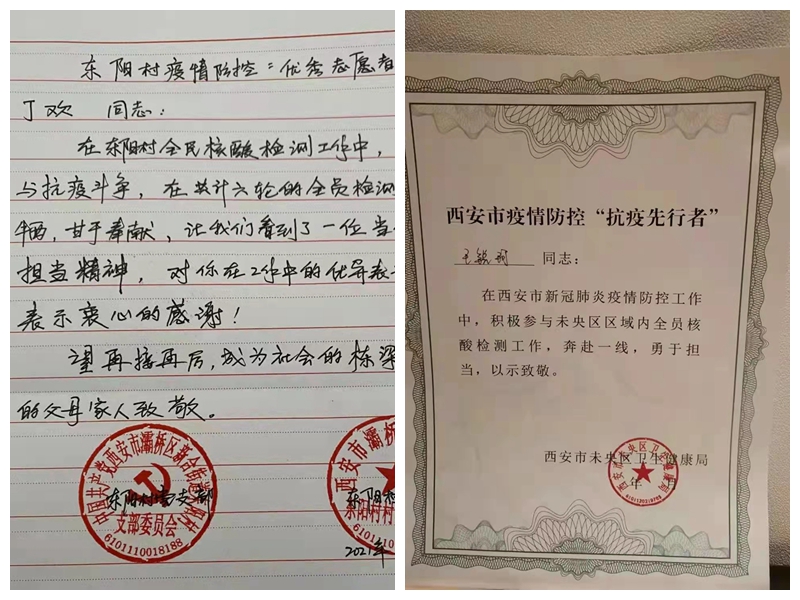 东阳村疫情防控“优秀志愿者
丁欢 同志：
在东阳村全民核酸检测工作中，
与抗疫斗争，在共计六轮的全员检测
牺，甘于奉献，让我们看到了一位当
担当精神，对你在工作中的优异表
表示衷心的感谢！
望再接再厉，成为社会的栋梁
的父母家人致敬。
中国共产党西安市灞桥区新合街道东阳村
支部委员会
6101110018188
东阳村党支部
西安市灞桥
东阳村村
东阳村
2021年
西安市疫情防控“抗疫先行者”
同志：
在西安市新冠肺炎疫情防控工作
中，积极参与未央区区域内全员核
酸检测工作，奔赴一线，勇于担
当，以示致敬。
西安市未央区卫生健康局
年